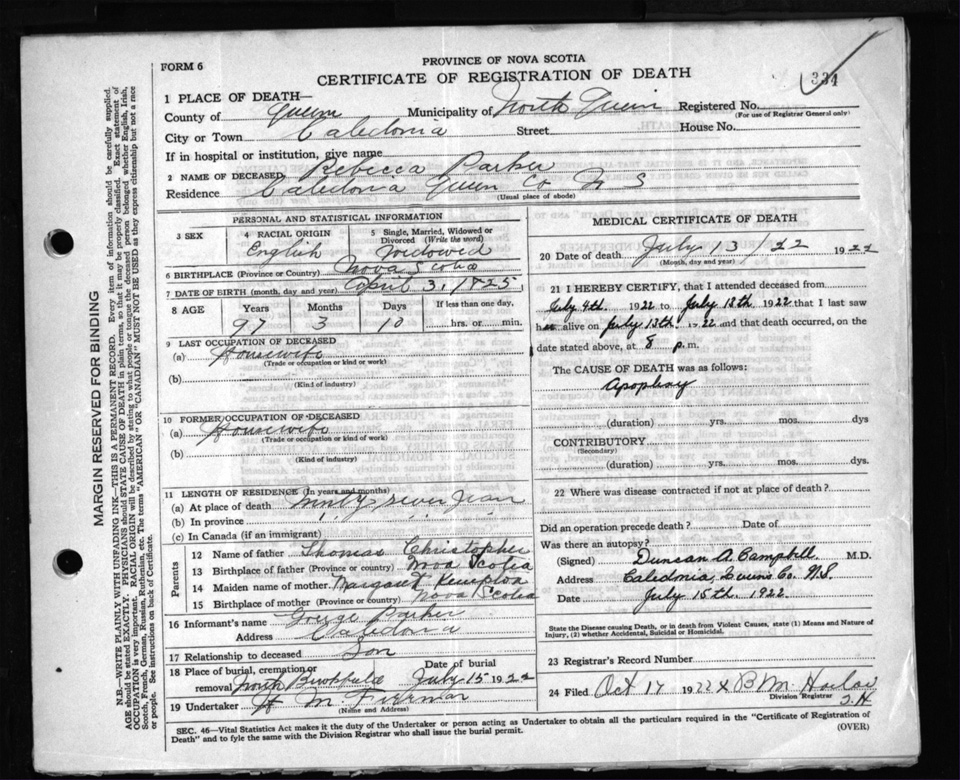 FORM 6
PROVINCE OF NOVA SCOTIA
CERTIFICATE OF REGISTRATION OF DEATH
334
1 PLACE OF DEATH—
County of Queens Municipality of North Queen Registered No.
(For use of Registrar General only)
City or Town Caledonia Street House No.
If in hospital or institution, give name
2 NAME OF DECEASED Rebecca Parker
Residence Caledonia Queen Co N S
(Usual place of abode)
PERSONAL AND STATISTICAL INFORMATION
3 SEX
4 RACIAL ORIGIN
English
5 Single, Married, Widowed or Divorced (Write the word)
Widowed
6 BIRTHPLACE (Province or Country) Nova Scotia
7 DATE OF BIRTH (month, day and year) April 3, 1825
8 AGE Years Months Days If less than one day,
97 3 10 hrs. or min.
9 LAST OCCUPATION OF DECEASED
(a) Housewife
(Trade or occupation or kind or work)
(b)
(Kind of industry)
10 FORMER OCCUPATION OF DECEASED
(a) Housewife
(Trade or occupation or kind of work)
(b)
(Kind of industry)
11 LENGTH OF RESIDENCE (In years and months)
(a) At place of death Ninty seven years
(b) In province " "
(c) In Canada (if an immigrant)
Parents
12 Name of father Thomas Christopher
13 Birthplace of father (Province or country) Nova Scotia
14 Maiden name of mother Margaret Kempton
15 Birthplace of mother (Province or country) Nova Scotia
16 Informant's name George Parker
Address Caledonia
17 Relationship to deceased Son
18 Place of burial, cremation or removal North Brookfield Date of burial July 15 1922
19 Undertaker H M
(Name and Address)
MEDICAL CERTIFICATE OF DEATH
20 Date of death July 13/22 1922
(Month, day and year)
21 I HEREBY CERTIFY, that I attended deceased from
July 4th. 1922 to July 13th. 1922 that I last saw
her alive on July 13th. 1922 and that death occurred, on the
date stated above, at 8 p.m.
The CAUSE OF DEATH was as follows:
Apoplexy
(duration) yrs. mos. dys
CONTRIBUTORY
(Secondary)
(duration) yrs. mos. dys.
22 Where was disease contracted if not at place of death?
Did an operation precede death? Date of
Was there an autopsy?
(Signed) Duncan A. Campbell. M.D.
Address Caledonia, Queens Co. N.S.
Date July 15th. 1922.
State the Disease causing Death, or in death from Violent Causes, state (1) Means and Nature of Injury, (2) whether Accidental, Suicidal or Homicidal.
23 Registrar's Record Number
24 Filed Oct 17 1922 B M Harlow
Division Registrar
SEC. 46—Vital Statistics Act makes it the duty of the Undertaker or person acting as Undertaker to obtain all the particulars required in the "Certificate of Registration of
Death" and to fyle the same with the Division Registrar who shall issue the burial permit.
(OVER)
MARGIN RESERVED FOR BINDING
N.B.—WRITE PLAINLY WITH UNFADING INK—THIS IS A PERMANENT RECORD. Every item of information should be carefully supplied.
AGE should be stated EXACTLY. PHYSICIANS should STATE CAUSE OF DEATH in plain terms, so that it may be properly classified. Exact statement of
OCCUPATION is very important. RACIAL ORIGIN will be described by stating to what people or tongue the deceased person belonged whether English, Irish,
Scotch, French, German, Russian, Ruthenian, etc. The terms "AMERICAN" OR "CANADIAN" MUST NOT BE USED as they express citizenship but not a race
or people. See instructions on back of Certificate.